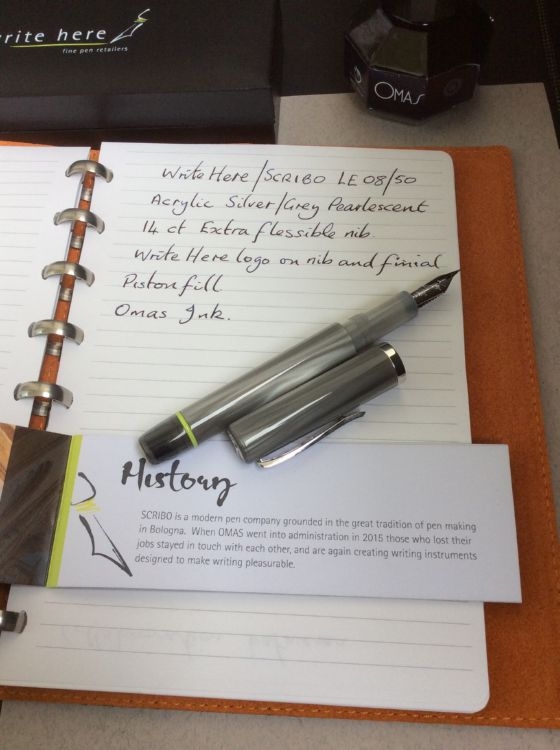 write here
fine pen retailers
OMAS
Write Here/SCRIBO LE 08/50
Acrylic Silver/Grey Pearlescent
14 ct Extra flessible nib.
Write Here logo on nib and finial
Piston fill
Omas Ink.
History
SCRIBO is a modern pen company grounded in the great tradition of pen making
in Bologna. When OMAS went into administration in 2015 those who lost their
jobs stayed in touch with each other, and are again creating writing instruments
designed to make writing pleasurable.